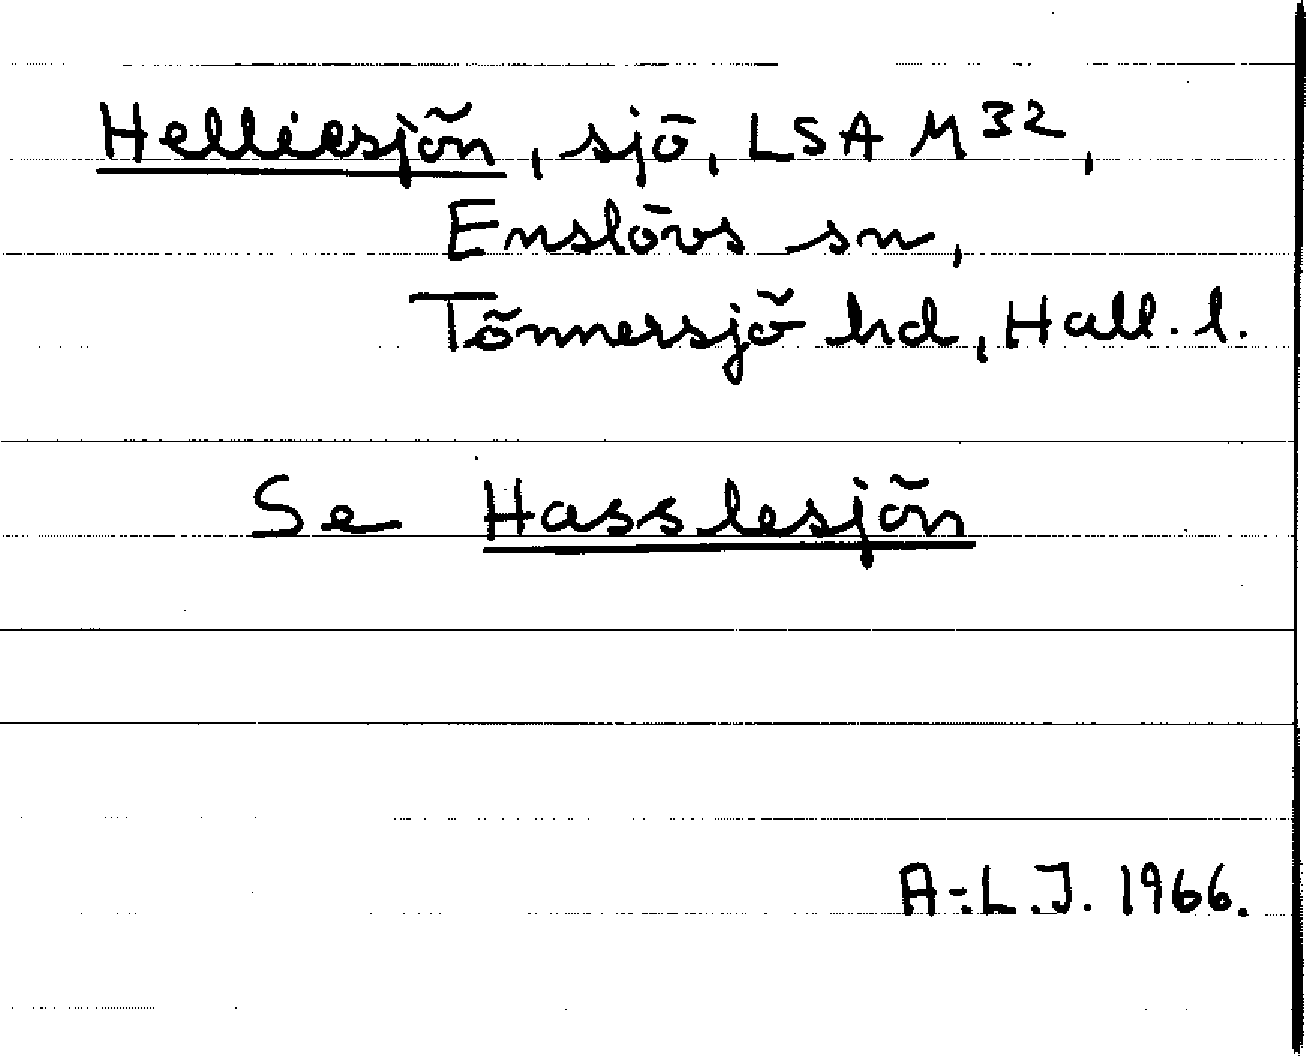 Helliesjön, sjö, LSA M32,
Enslövs sn,
Tönnersjö hd, Hall. l.
Se Hasslesjön
A-:L.J. 1966.